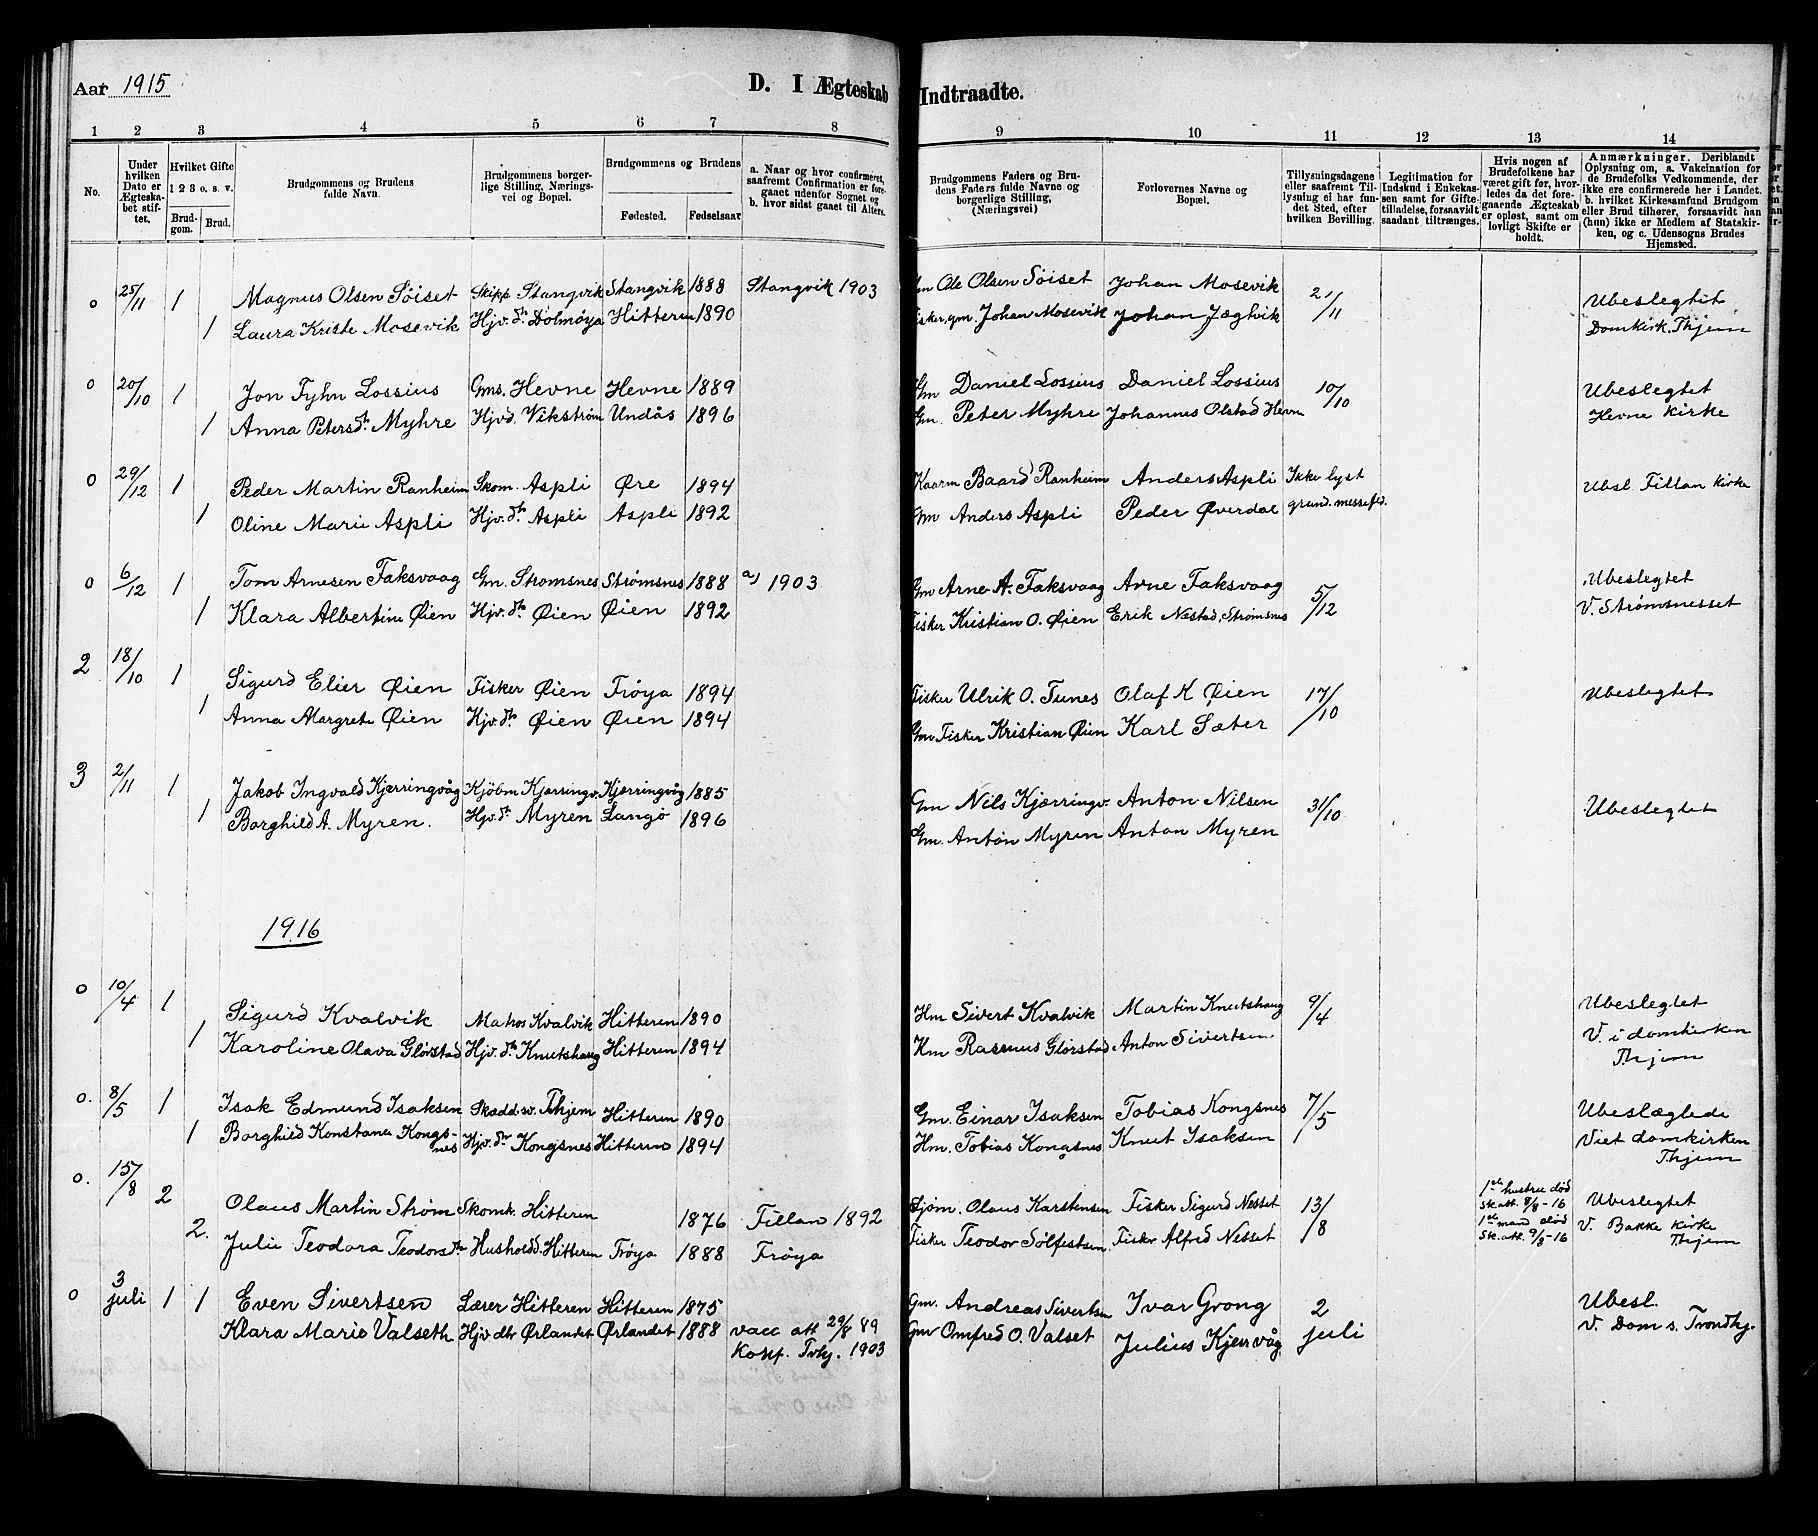 Aar 1915
D. I Ægteskab Indtraadte.
1 2 3 4 5 6 7 8 9 10 11 12 13 14
No.
Under hvilken Dato er Ægteskabet stiftet.
Hvilket Gifte
1 2 3 o. s. v.
Brudgom. Brud.
Brudgommens og Brudens fulde Navn.
Brudgommens borgerlige Stilling, Næringsvei og Bopæl.
Brudgommens og Brudens
Fødested. Fødselsaar
a. Naar og hvor confirmeret, saafremt Confirmation er foregaaet udenfor Sognet og b. hvor sidst gaaet til Alters.
Brudgommens Faders og Brudens Faders fulde Navne og borgerlige Stilling, (Næringsvei)
Forlovernes Navne og Bopæl.
Tillysningsdagene eller saafremt Tillysning ei har fundet Sted, efter hvilken Bevilling.
Legitimation for Indskud i Enkekassen samt for Giftetilladelse, forsaavidt saadant tiltrænges.
Hvis nogen af Brudefolkene har været gift før, hvorledes da det foregaaende Ægteskab er opløst, samt om lovligt Skifte er holdt.
Anmærkninger. Deriblandt Oplysning om, a. Vakcination for de Brudefolks Vedkommende, der ikke ere confirmerede her i Landet. b. hvilket Kirkesamfund Brudgom eller Brud tilhører, forsaavidt han (hun) ikke er Medlem af Statskirken, og c. Udensogns Brudes Hjemsted.
0 25/11 1 Magnus Olsen Söiset Skipp Stangvik Stangvik 1888 Stangvik 1903 Gm Ole Olsen Söiset Johan Mosevik 21/11 Ubeslegtet
1 Laura Kriste Mosevik Hjv. dtr Dolmøya Hitteren 1890 Fisker, gm. Johan Mosevik Johan Jægtvik Domkirk. Thjem
0 20/10 1 Jon Fyhn Lossius Gms. Hevne Hevne 1889 Gm Daniel Lossius Daniel Lossius 10/10 Ubeslegtet
1 Anna Petersdtr. Myhre Hjvd. Vikstrøm Undås 1896 Gm. Peter Myhre Johannes Olstad Hevn Hevne kirke
0 29/12 1 Peder Martin Ranheim Skom. Aspli Øre 1894 Kaarm Baard Ranheim Anders Aspli Ikke lyst Ubsl. Fillan kirke
1 Oline Marie Aspli Hjv. dtr Aspli Aspli 1892 Gm Anders Aspli Peder Øverdal grund. messefld.
0 6/12 1 Tom Arnesen Faksvaag Gm. Strømsnes Strømsnes 1888 a) 1903 Gm Arne A. Faksvaag Arne Faksvaag 5/12 Ubeslegtet
1 Klara Albertine Øien Hjv. dtr Øien Øien 1892 Fisker Kristian O. Øien Erik Næstad, Strømsnes V. Strømsnesset
2 18/10 1 Sigurd Elier Øien Fisker Øien Frøya 1894 Fisker Ulrik O. Tunes Olaf K Øien 17/10 Ubeslegtet
1 Anna Margrete Øien Hjv. dtr Øien Øien 1894 Gm Fisker Kristian Øien Karl Sæter
3 2/11 1 Jakob Ingvald Kjerringvåg Kjöbm Kjerringv. Kjerringvåg 1885 Gm Nils Kjærringv. Anton Nilsen 31/10 Ubeslegtet
1 Borghild A. Myren. Hjv. dtr Myren Langø 1896 Gm. Anton Myren Anton Myren
1916
0 10/4 1 Sigurd Kvalvik Matros Kvalvik Hitteren 1890 Hm Sivert Kvalvik Martin Knutshaug 9/4 Ubeslegtet
1 Karoline Olava Glørstad Hjv. dtr Knutshaug Hitteren 1894 Hm Rasmus Glørstad Anton Sivertsen V. i domkirken Thjem
0. 8/5 1 Isak Edmund Isaksen Skædd. sv. Thjem Hitteren 1890 Gm. Einar Isaksen Tobias Kongsnes 7/5 Ubeslæglede
1 Borghild Konstanse Kongsnes Hjv. dtr Kongsnes Hitteren 1894 Hm. Tobias Kongsnes Knut Isaksen Viet domkirken Thjem
0. 15/8 2 Olaus Martin Strøm Skomk. Hitteren 1876 Fillan 1892 Sjøm. Olaus Karstensen Fisker Sigurd Nesset 13/8 1ste hustru død sk. att. 8/8-16 Ubeslegtet
2. Julie Teodora Teodorsdtr Husholdd. Hitteren Frøya 1888 Frøya Fisker Teodor Sølfestsen Fisker Alfred Nesset 1ste man død Sk. att. 9/8-16 V. Bakke kirke Thjem
0 3 juli 1 1 Even Sivertsen Lærer Hitteren Hitteren 1875 Gm. Andreas Sivertsen Ivar Grong 2 juli Ubesl.
Klara Marie Valseth Hjv dtr Ørlandet Ørlandet 1888 vacc att 29/8 89 Gm Omfred O. Valset Julius Kjerrvåg V. Dom s. Trondhj.
Konf. Trhj. 1903